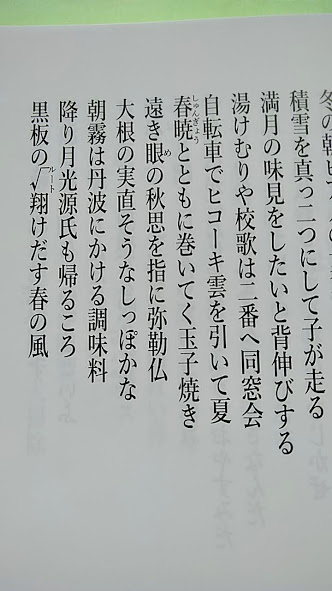 積雪を真っ二つにして子が走る
満月の味見をしたいと背伸びする
湯けむりや校歌は二番へ同窓会
自転車でヒコーキ雲を引いて夏
春暁とともに巻いてく玉子焼き
しゅんぎょう
遠き眼の秋思を指に弥勒仏
め
大根の実直そうなしっぽかな
朝霧は丹波にかける調味料
降り月光源氏も帰るころ
黒板の√翔けだす春の風
ルート